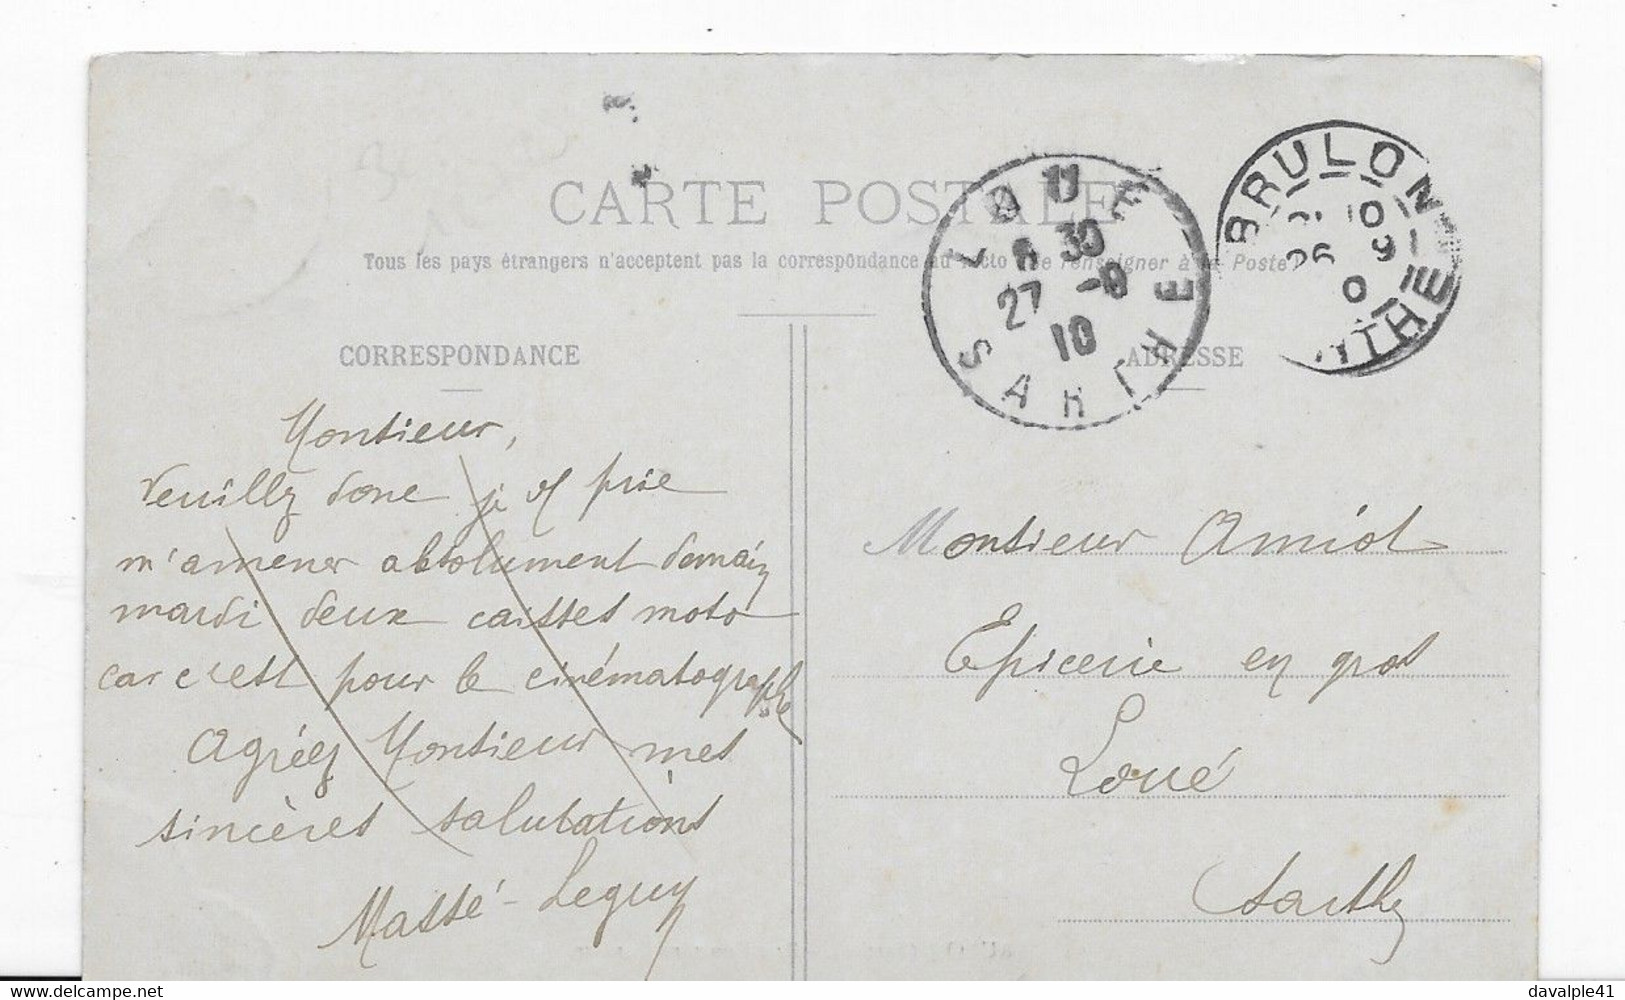 CARTE POSTALE
Tous les pays étrangers n'acceptent pas la correspondance au recto (Se renseigner à la Poste)
CORRESPONDANCE
Monsieur,
Veuillez donc je v/ prie
m'amener absolument demain
mardi deux caisses moto
car c'est pour le cinématographe
Agréez Monsieur mes
sincères salutations
Massé-Leguy
LOUE
11 30
27 -9
10
SARTHE
BRULON
26 9
THE
ADRESSE
Monsieur Amiot
Epicerie en gros
Loué
Sarthe
delcampe.net
davalple41